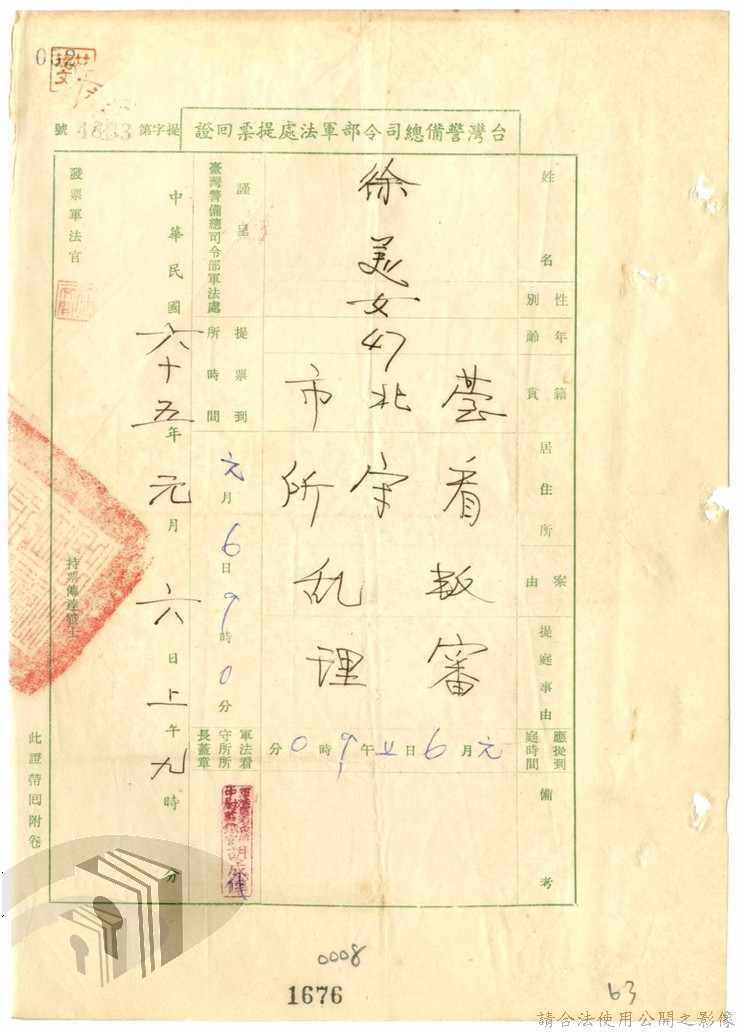 台灣警備總司令部軍法處提票回證
提字第4633號
姓名
徐美
性別
女
年齡
47
籍貫
臺北市
居住所
看守所
案由
叛乱
提庭事由
審理
應提到庭時間
元月6日上午9時0分
備考
謹呈
臺灣警備總司令部軍法處
提票到所時間
元月6日9時0分
軍法看守所所長蓋章
中華民國六十五年元月六日上午九時 分
發票軍法官
持票傳達戰士
此證帶回附卷
0008
1676
63
請合法使用公開之影像